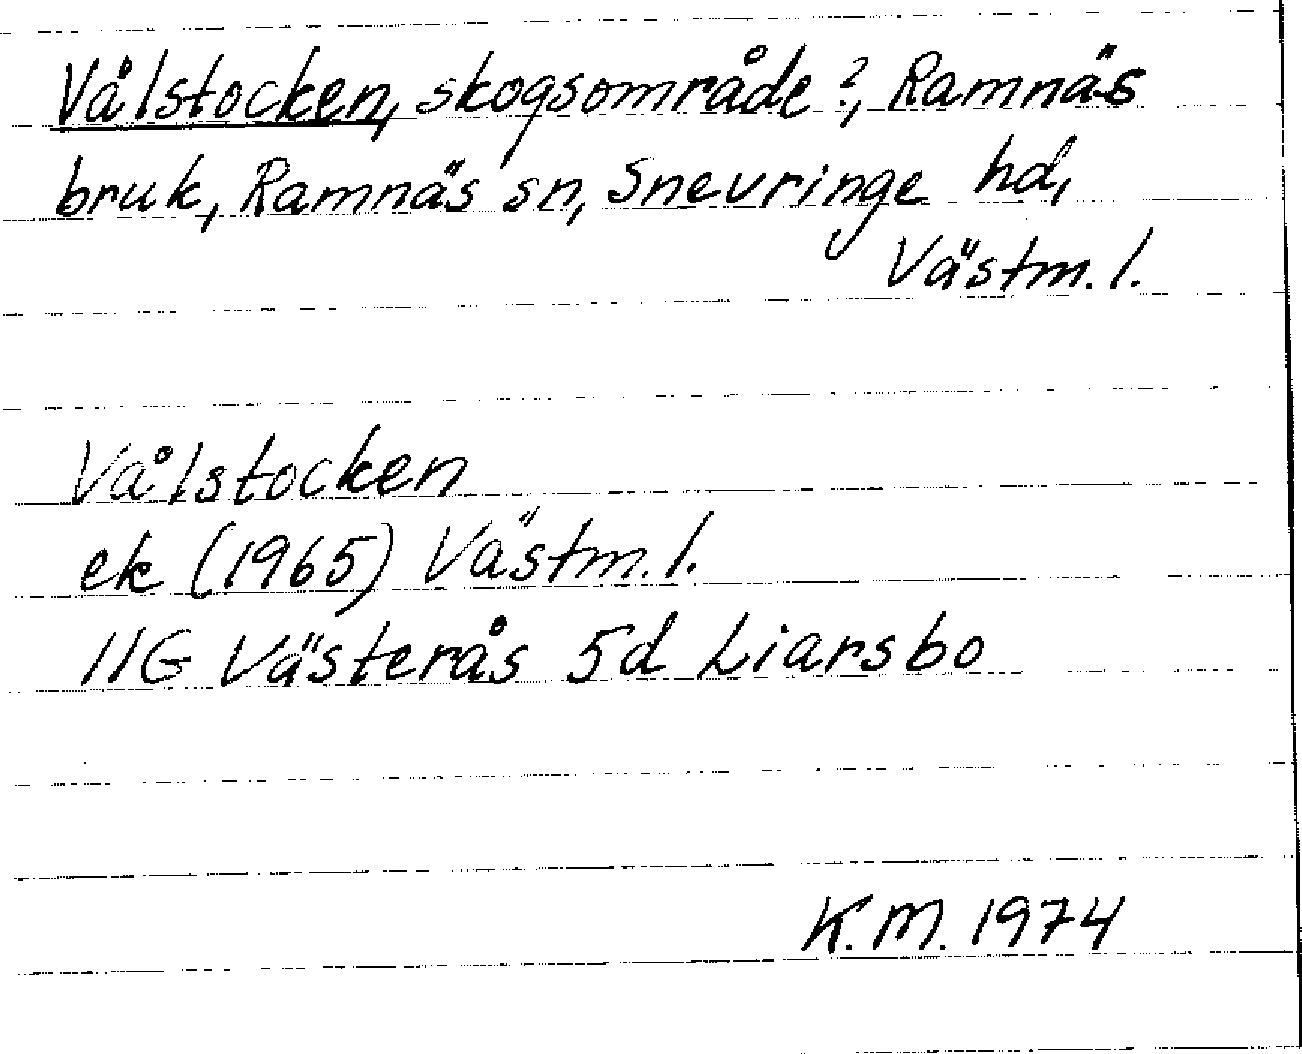 Vålstocken, skogsområde?, Ramnäs
bruk, Ramnäs sn, Snevringe hd,
Västm. l.
Vålstocken
ek (1965) Västm. l.
11G Västerås 5d Liarsbo
K. M. 1974